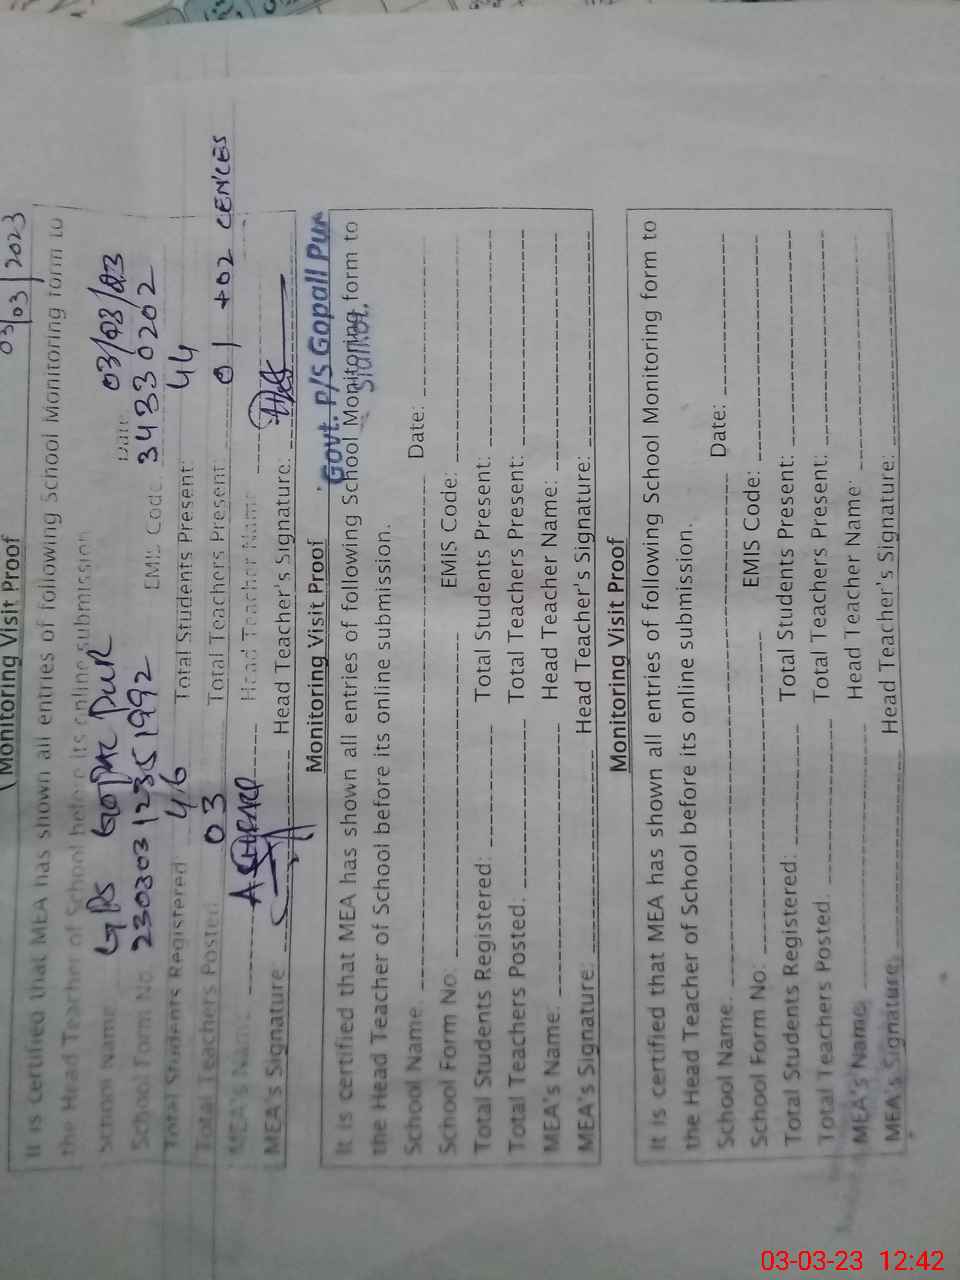 03/03/2023
Monitoring Visit Proof
It is certified that MEA has shown all entries of following School Monitoring form to
the Head Teacher of School before its online submission
School Name GPS GOPAL PUR Date: 03/03/23
School Form No. 23030312351992 EMIS Code: 34330202
Total Students Registered 46 Total Students Present: 44
Total Teachers Posted 03 Total Teachers Present: 01 +02 CENCES
MEA's Name Head Teacher Name
MEA's Signature: Head Teacher's Signature:
Govt. P/S Gopall Pur
Sialkot.
Monitoring Visit Proof
It is certified that MEA has shown all entries of following School Monitoring form to
the Head Teacher of School before its online submission.
School Name: Date:
School Form No: EMIS Code:
Total Students Registered: Total Students Present:
Total Teachers Posted: Total Teachers Present:
MEA's Name: Head Teacher Name:
MEA's Signature: Head Teacher's Signature:
Monitoring Visit Proof
It is certified that MEA has shown all entries of following School Monitoring form to
the Head Teacher of School before its online submission.
School Name: Date:
School Form No: EMIS Code:
Total Students Registered: Total Students Present:
Total Teachers Posted. Total Teachers Present:
MEA's Name Head Teacher Name:
MEA's Signature: Head Teacher's Signature:
03-03-23 12:42